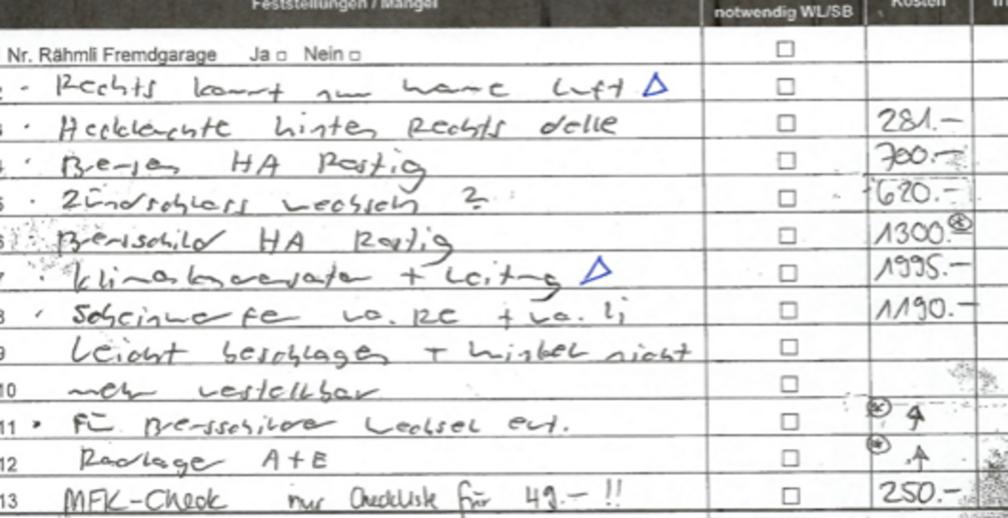 Feststellungen / Mängel notwendig WL/SB Kosten
Nr. Rähmli Fremdgarage Ja □ Nein □ □
- Rechts kommt nur warme Luft △ □
· Heckleuchte hinten Rechts delle □ 281.-
· Bremsen HA Rostig □ 700.-
· Zündschloss wechseln ? □ 620.-
Bremsschild HA Rostig □ 1300.- ⊛
· Klimakondensator + Leitung △ □ 1995.-
8 · Scheinwerfer vo. RE + vo. li □ 1190.-
9 Leicht beschlagen + winkel nicht □
10 mehr verstellbar □
11 · Für Bremsschilder wechsel evt. □ ⊛ ↑
12 Radlager A+E □ ⊛ ↑
13 MFK-Check nur Checkliste für 49.- !! □ 250.-